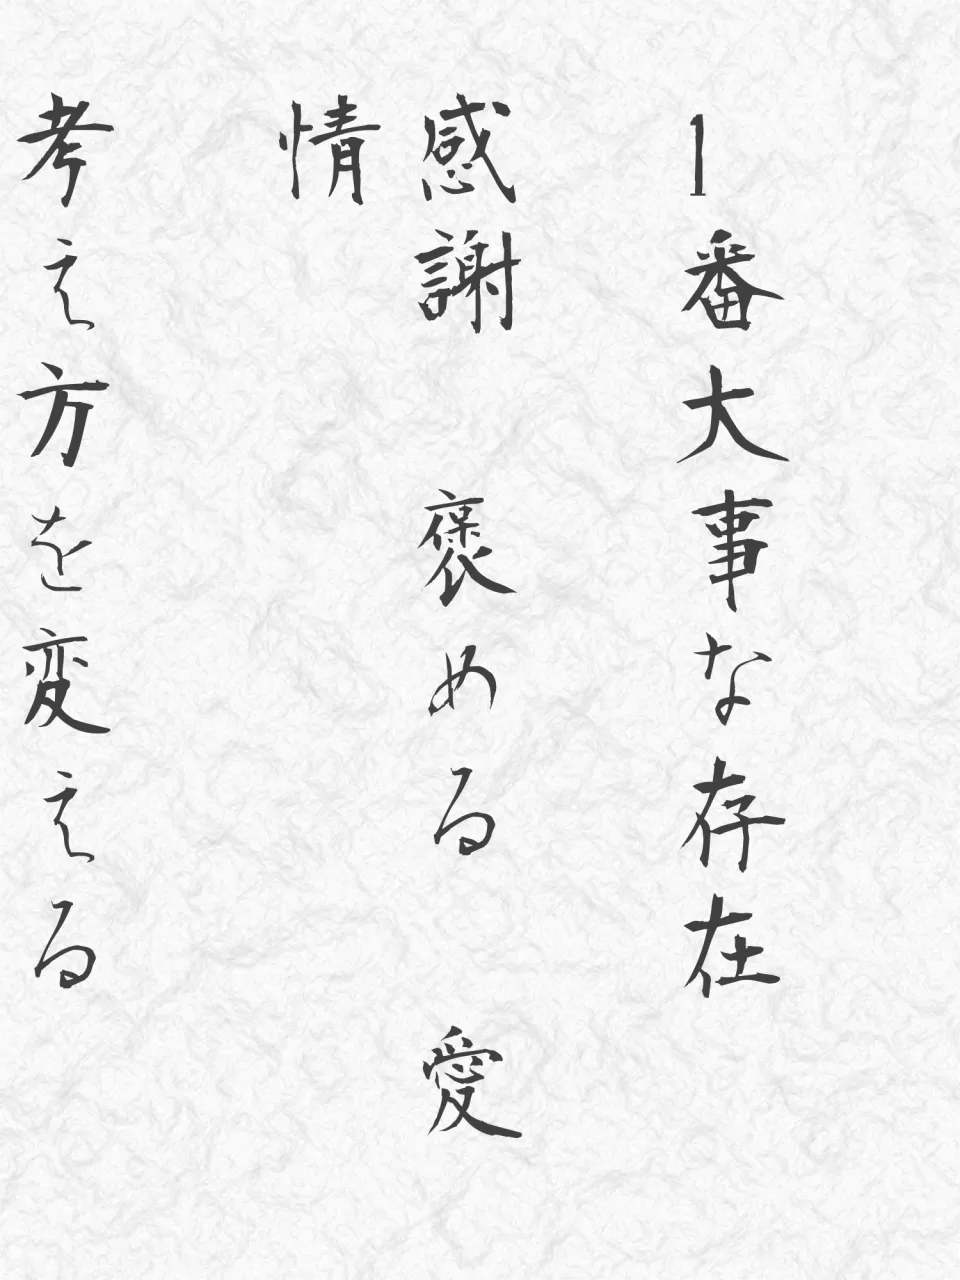 1番大事な存在
感謝　褒める　愛
情
考え方を変える